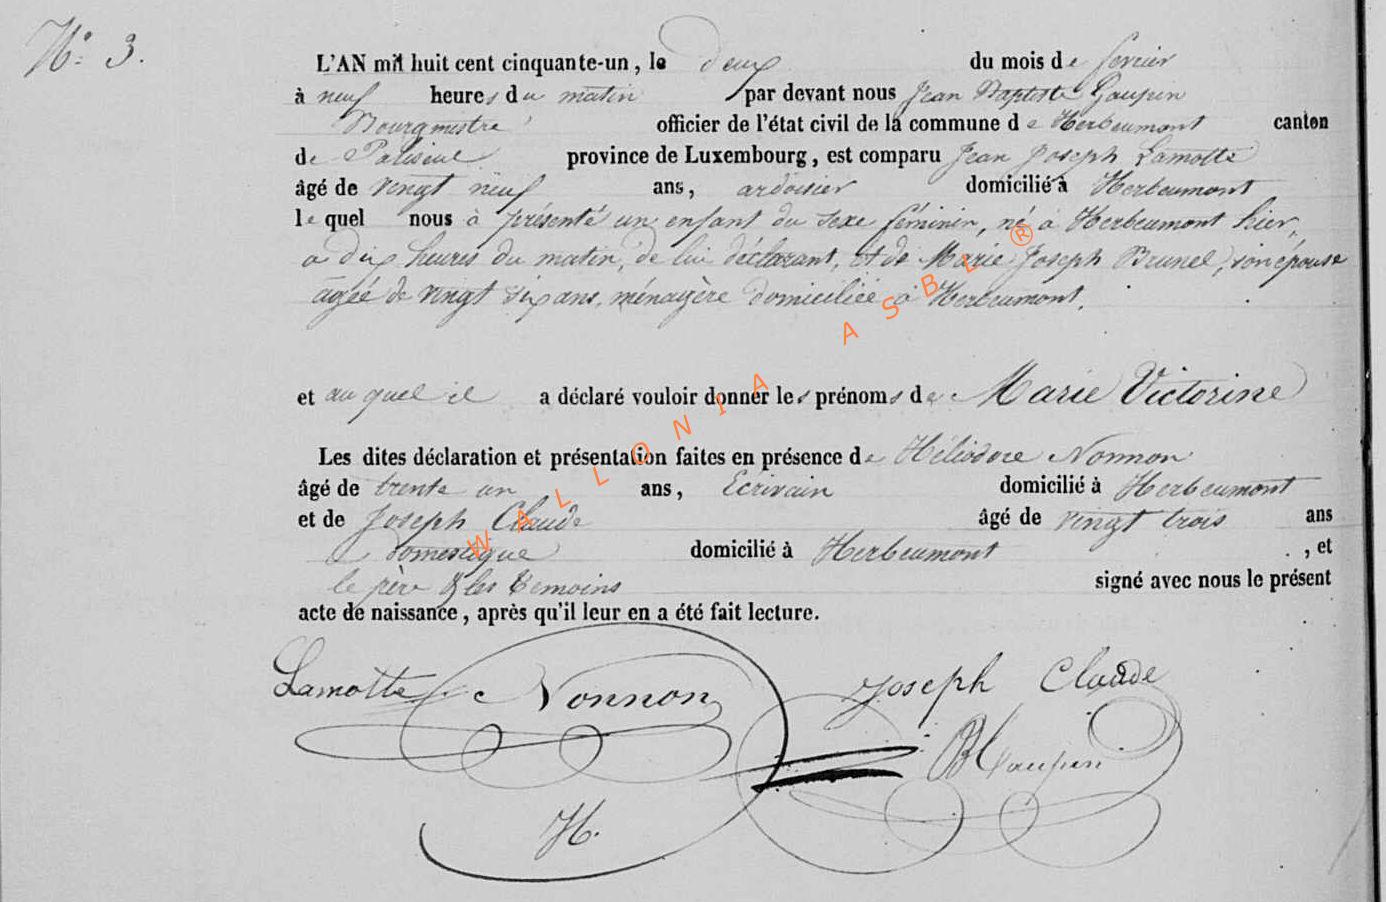 N° 3.
L'AN mil huit cent cinquante-un, le deux du mois de fevrier
à neuf heures du matin par devant nous Jean Baptiste Gaupin
Bourgmestre officier de l'état civil de la commune de Herbeumont canton
de Paliseul province de Luxembourg, est comparu Jean Joseph Lamotte
âgé de vingt neuf ans, ardoisier domicilié à Herbeumont
le quel nous à présenté un enfant du sexe féminin, né à Herbeumont hier,
a dix heures du matin, de lui déclarant, et de Marie Joseph Brunel, son épouse
agéé de vingt six ans, ménagère domiciliée à Herbeumont.
et au quel il a déclaré vouloir donner les prénoms de Marie Victorine
Les dites déclaration et présentation faites en présence de Héliodore Nonnon
âgé de trente un ans, Ecrivain domicilié à Herbeumont
et de Joseph Claude âgé de vingt trois ans
domestique domicilié à Herbeumont , et
le père & les temoins signé avec nous le présent
acte de naissance, après qu'il leur en a été fait lecture.
Lamotte Nonnon Joseph Claude
H.
WALLONIA ASBL ®